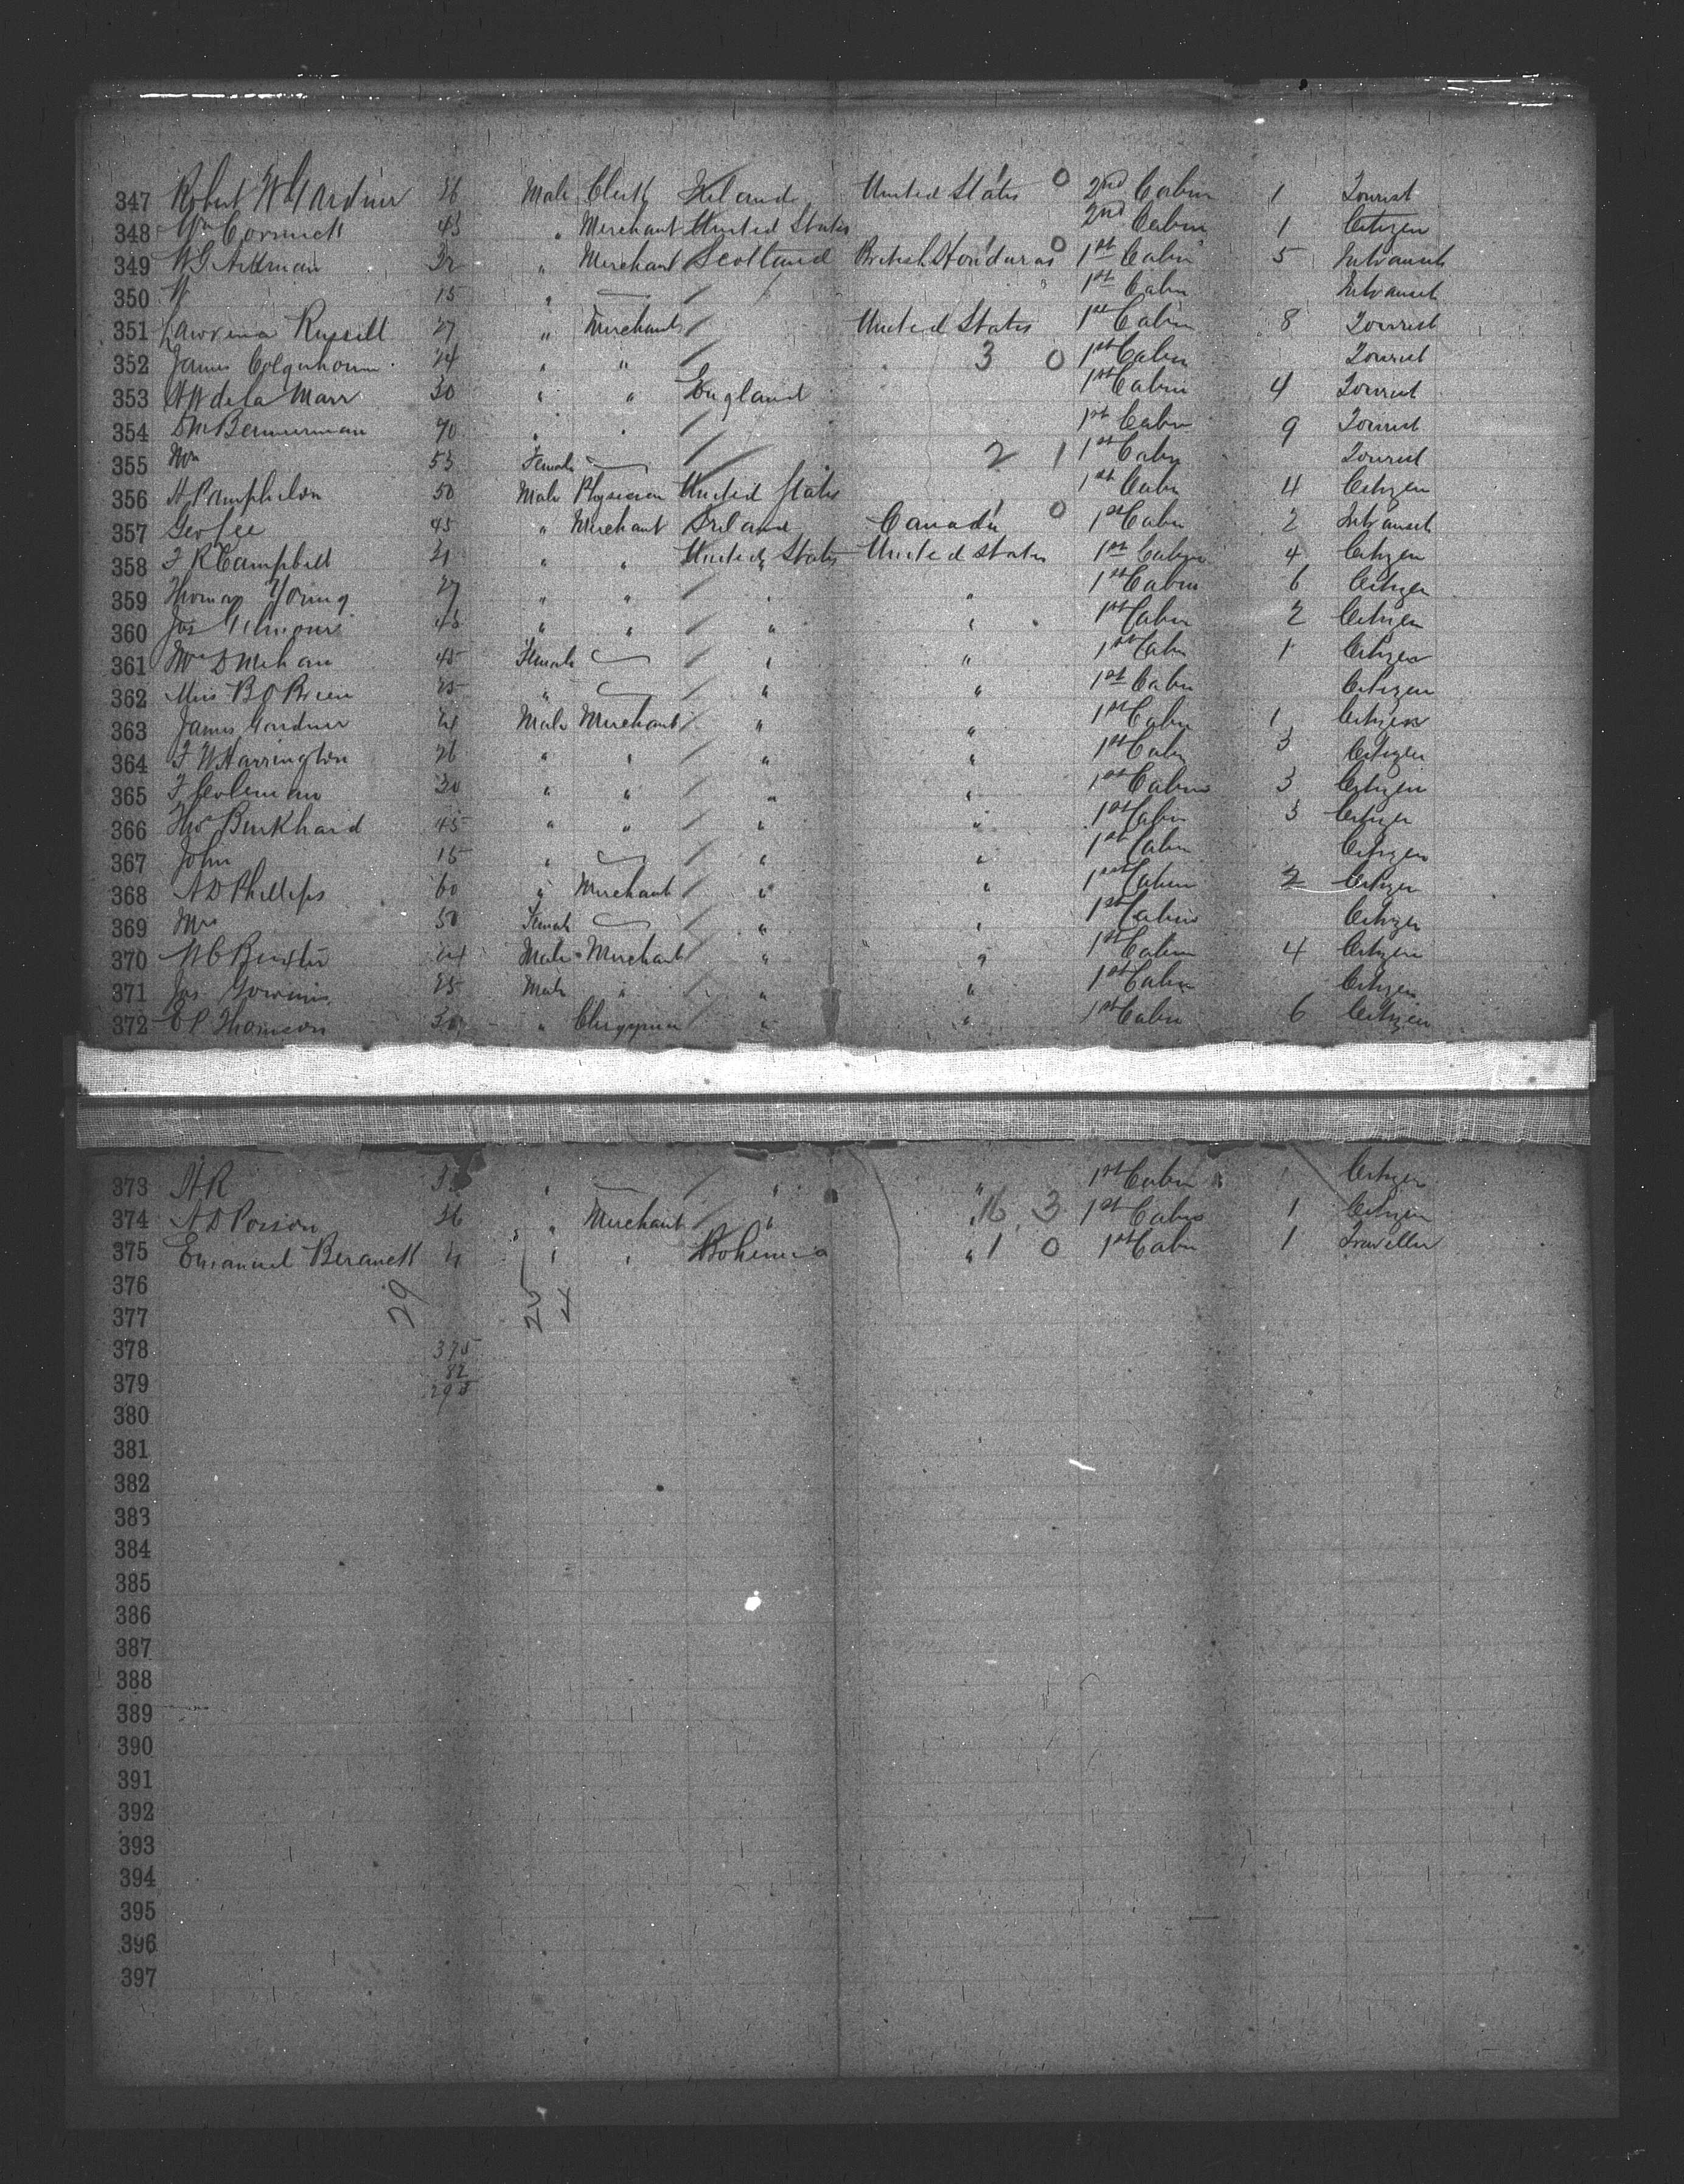 347 Robert W Gardner 26 Male Clerk Ireland United States 0 2nd Cabin 1 Tourist
348 Wm Cormick 43 " Merchant United States 2nd Cabin 1 Citizen
349 W G Aikman 32 " Merchant Scotland British Honduras 0 1st Cabin 5 Intransit
350 W 15 " 1st Cabin Intransit
351 Russell 27 " Merchant United States 1st Cabin 8 Tourist
352 James Colquhoun 24 " " 3 0 1st Cabin Tourist
353 de la Marr 30 " " England 1st Cabin 4 Tourist
354 70 " " 1st Cabin 9 Tourist
355 Mrs 53 Female 2 1 1st Cabin Tourist
356 H Pamphilon 50 Male Physician United States 1st Cabin 4 Citizen
357 Geo Lee 45 " Merchant Ireland Canada 0 1st Cabin 2 Intransit
358 F R Campbell 31 " " United States United States 1st Cabin 4 Citizen
359 Thomas Young 27 " " " " 1st Cabin 6 Citizen
360 Jas Gilmour 45 " " " " 1st Cabin 2 Citizen
361 Mrs D Mehan 45 Female " " 1st Cabin 1 Citizen
362 Miss B O Brien 25 " " " 1st Cabin Citizen
363 James Gardner 24 Male Merchant " " 1st Cabin 1 Citizen
364 F W Harrington 26 " " " " 1st Cabin 3 Citizen
365 F Coleman 30 " " " " 1st Cabin 3 Citizen
366 Thos Burkhard 45 " " " " 1st Cabin 3 Citizen
367 John 15 " " " 1st Cabin Citizen
368 A D Phillips 60 " Merchant " " 1st Cabin 2 Citizen
369 Mrs 50 Female " " 1st Cabin Citizen
370 W C Male Merchant " " 1st Cabin 4 Citizen
371 Jas 25 Male " " " 1st Cabin Citizen
372 E P Thomson 30 " Clergyman " " 1st Cabin 6 Citizen
373 H R " " " 1st Cabin Citizen
374 A D Poisson 36 " Merchant " " 16 3 1st Cabin 1 Citizen
375 Emanuel Beranek " " Bohemia " 1 0 1st Cabin 1 Traveller
376
29 25 4
377
378 375
82
379 293
380
381
382
383
384
385
386
387
388
389
390
391
392
393
394
395
396
397